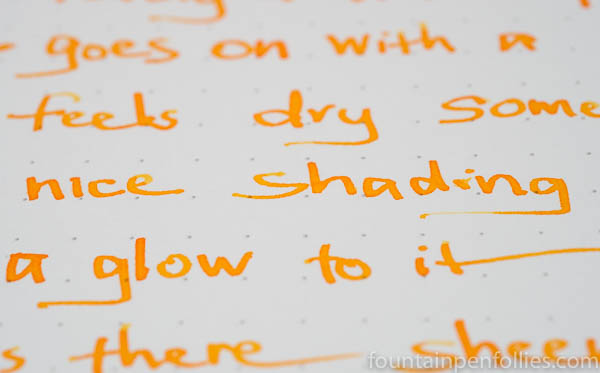 goes on with a
feels dry some
nice shading
a glow to it
s there sheen
fountainpenfollies.com